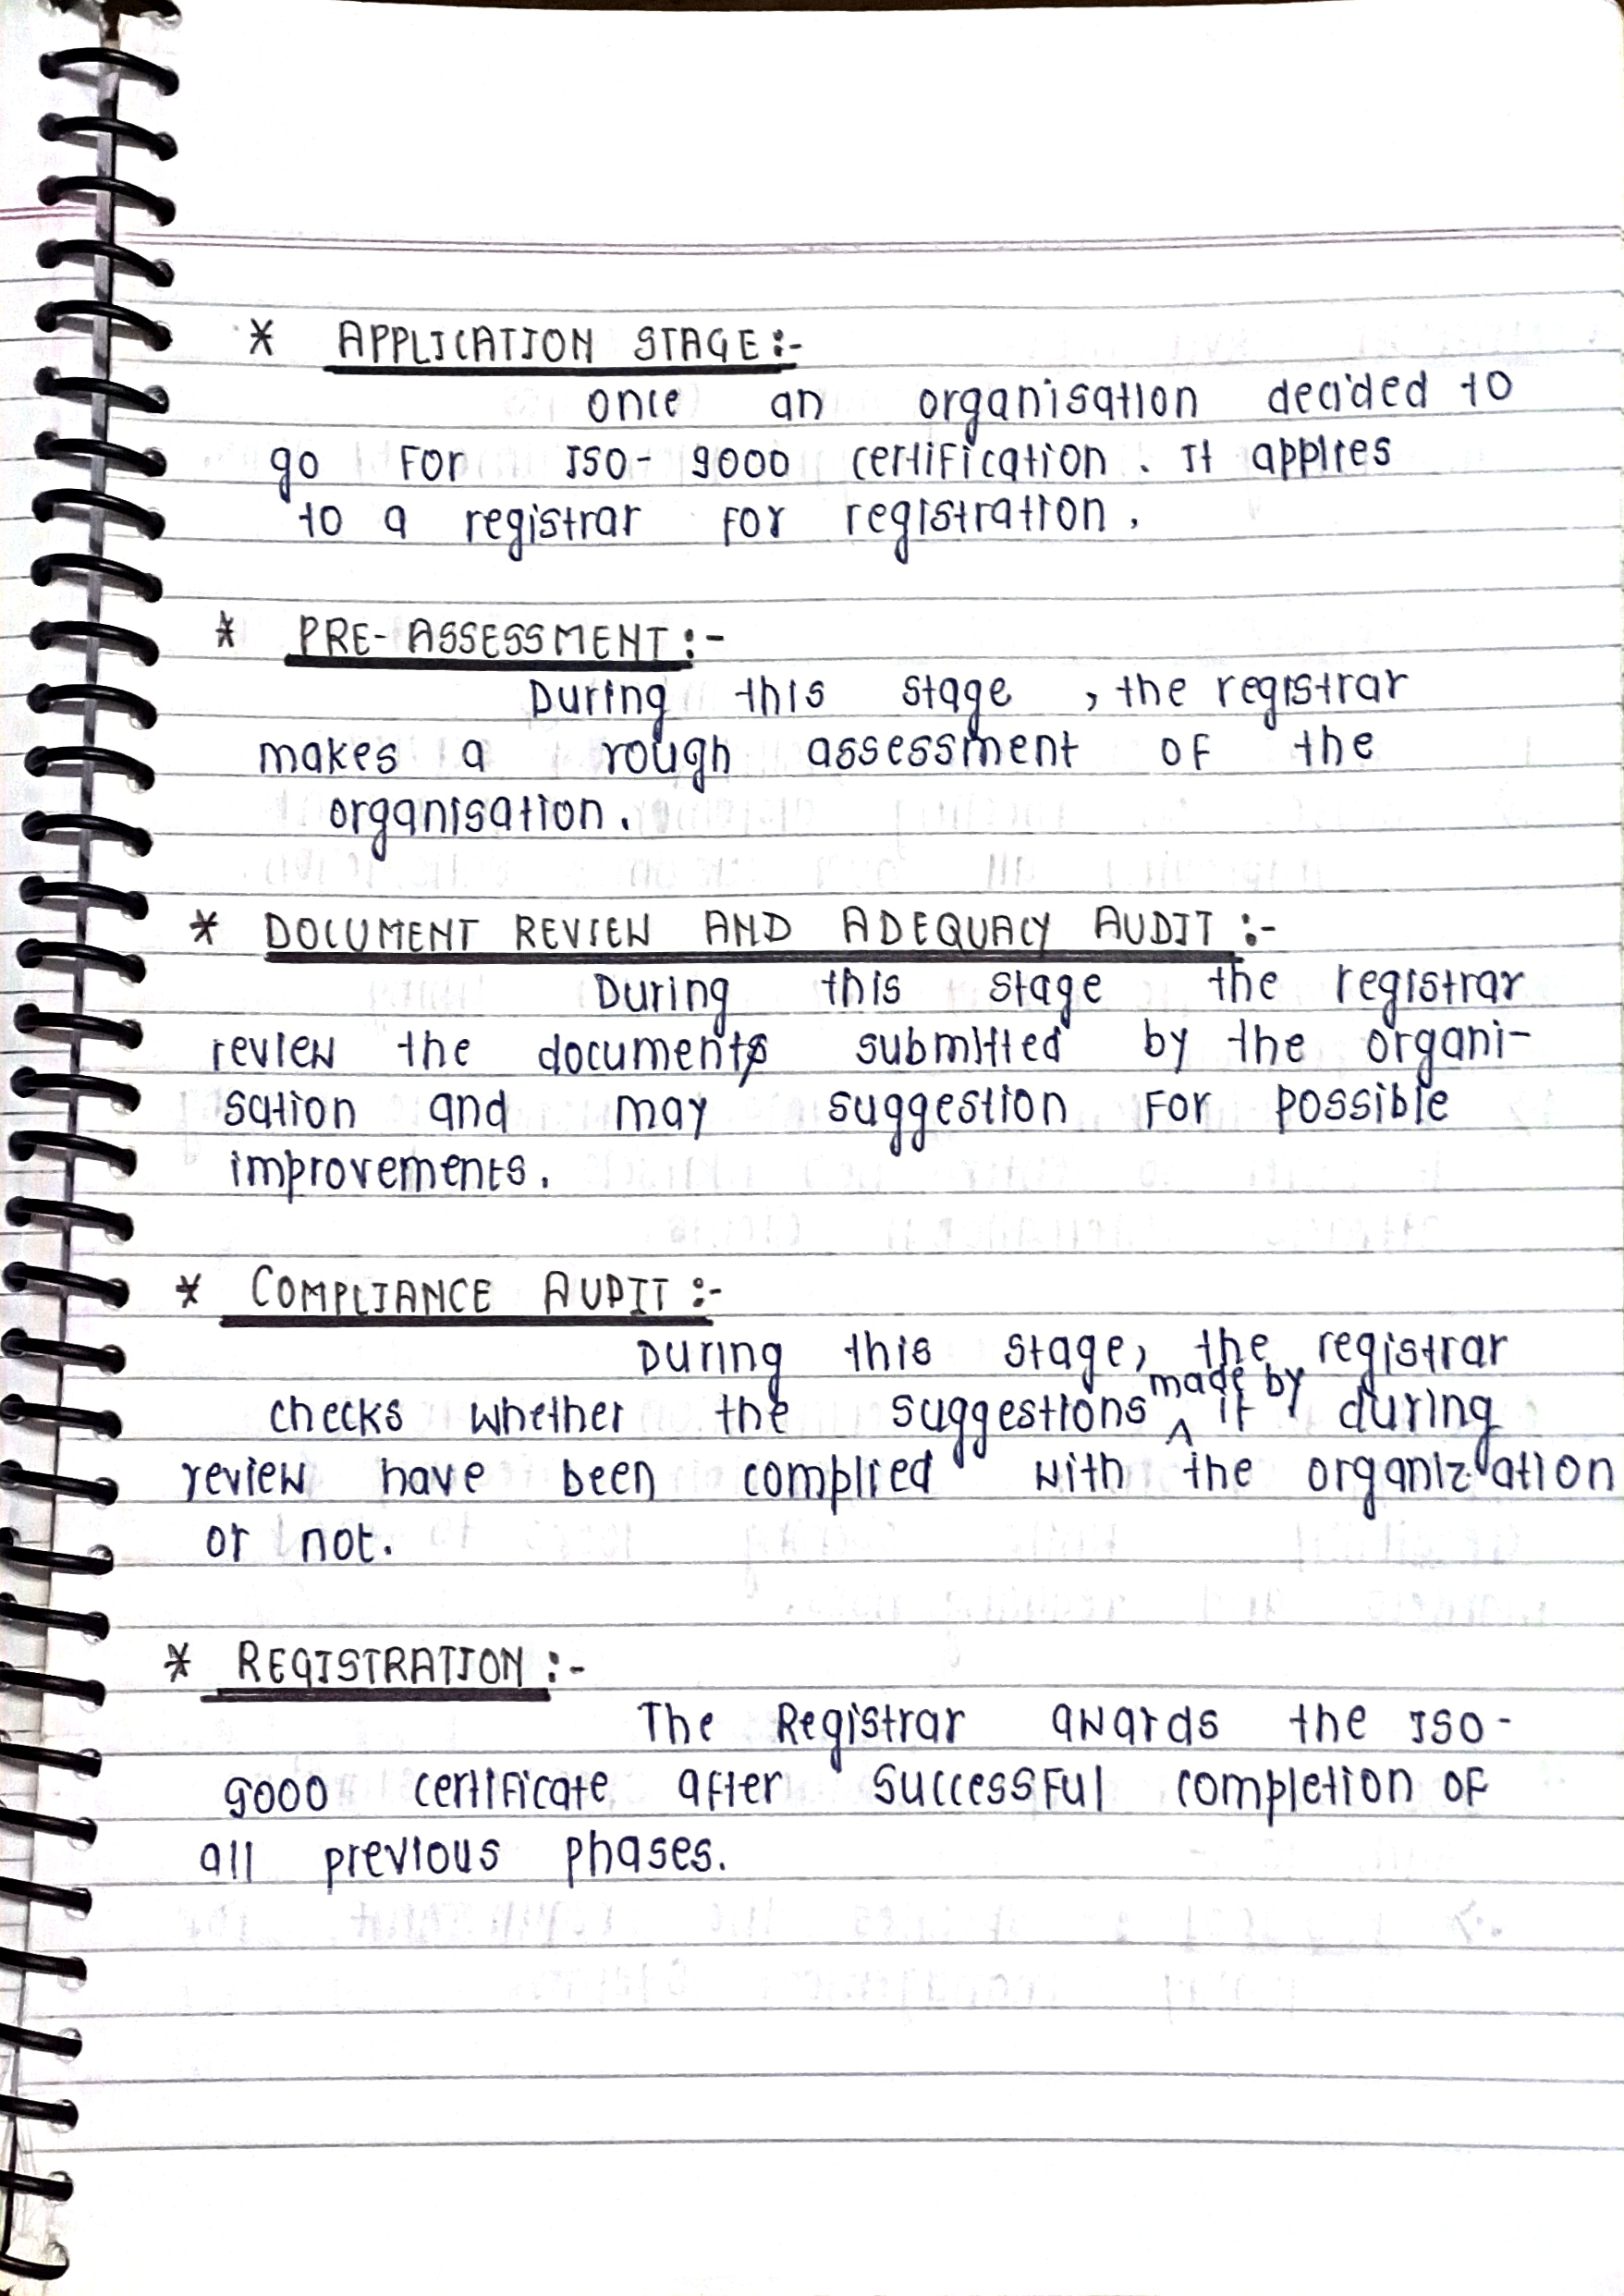 * APPLICATION STAGE:-
once an organisation decided to
go for ISO- 9000 certification. It applies
to a registrar for registration.
* PRE-ASSESSMENT:-
During this stage , the registrar
makes a rough assessment of the
organisation.
* DOCUMENT REVIEW AND ADEQUACY AUDIT :-
During this stage the registrar
review the documents submitted by the organi-
sation and may suggestion for possible
improvements.
* COMPLIANCE AUDIT :-
During this stage, the registrar
checks whether the suggestions made by it during
review have been complied with the organization
or not.
* REGISTRATION :-
The Registrar awards the ISO-
9000 certificate after successful completion of
all previous phases.